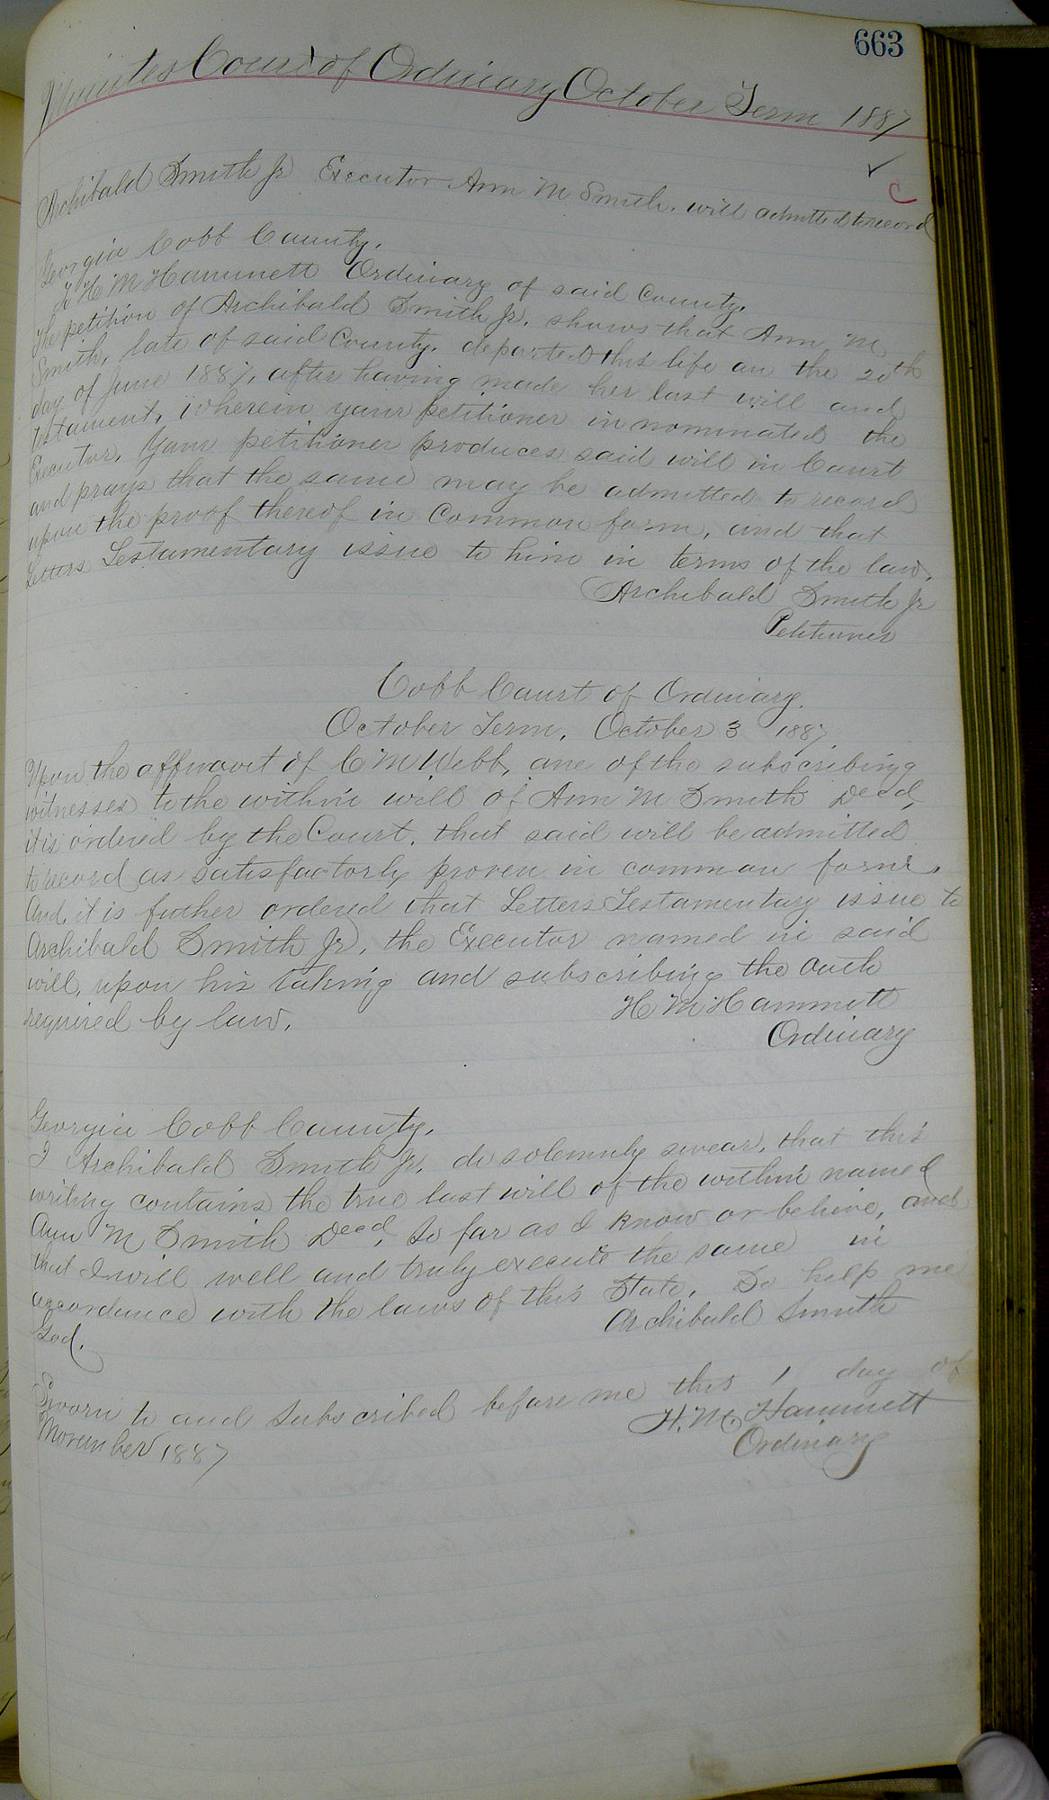 663
Minutes Court of Ordinary October Term 1887
✓
C
Archibald Smith Jr Executor Ann M Smith. will admitted to record
Georgia Cobb County.
To H M Hammett Ordinary of said County.
The petition of Archibald Smith Jr. shows that Ann M
Smith, late of said County. departed this life on the 20th
day of June 1887, after having made her last will and
testament, wherein your petitioner in nominated the
Executor. Your petitioner produces said will in Court
and prays that the same may be admitted to record
upon the proof thereof in Common form, and that
Letters Testamentary issue to him in terms of the law.
Archibald Smith Jr
Petitioner
Cobb Court of Ordinary.
October Term, October 3 1887
Upon the affidavit of C M Webb, one of the subscribing
witnesses to the within will of Ann M Smith Decd,
it is ordered by the Court, that said will be admitted
to record as satisfactorly proven in common form.
And it is further ordered that Letters Testamentary issue to
Archibald Smith Jr, the Executor named in said
will, upon his taking and subscribing the oath
required by law.
H M Hammett
Ordinary
Georgia Cobb County.
I Archibald Smith Jr. do solemnly swear, that this
writing contains the true last will of the within named
Ann M Smith Decd, so far as I know or believe, and
that I will well and truly execute the same in
accordance with the laws of this State. So help me
God.
Archibald Smith
Sworn to and subscribed before me this 1 day of
November 1887
H. M. Hammett
Ordinary